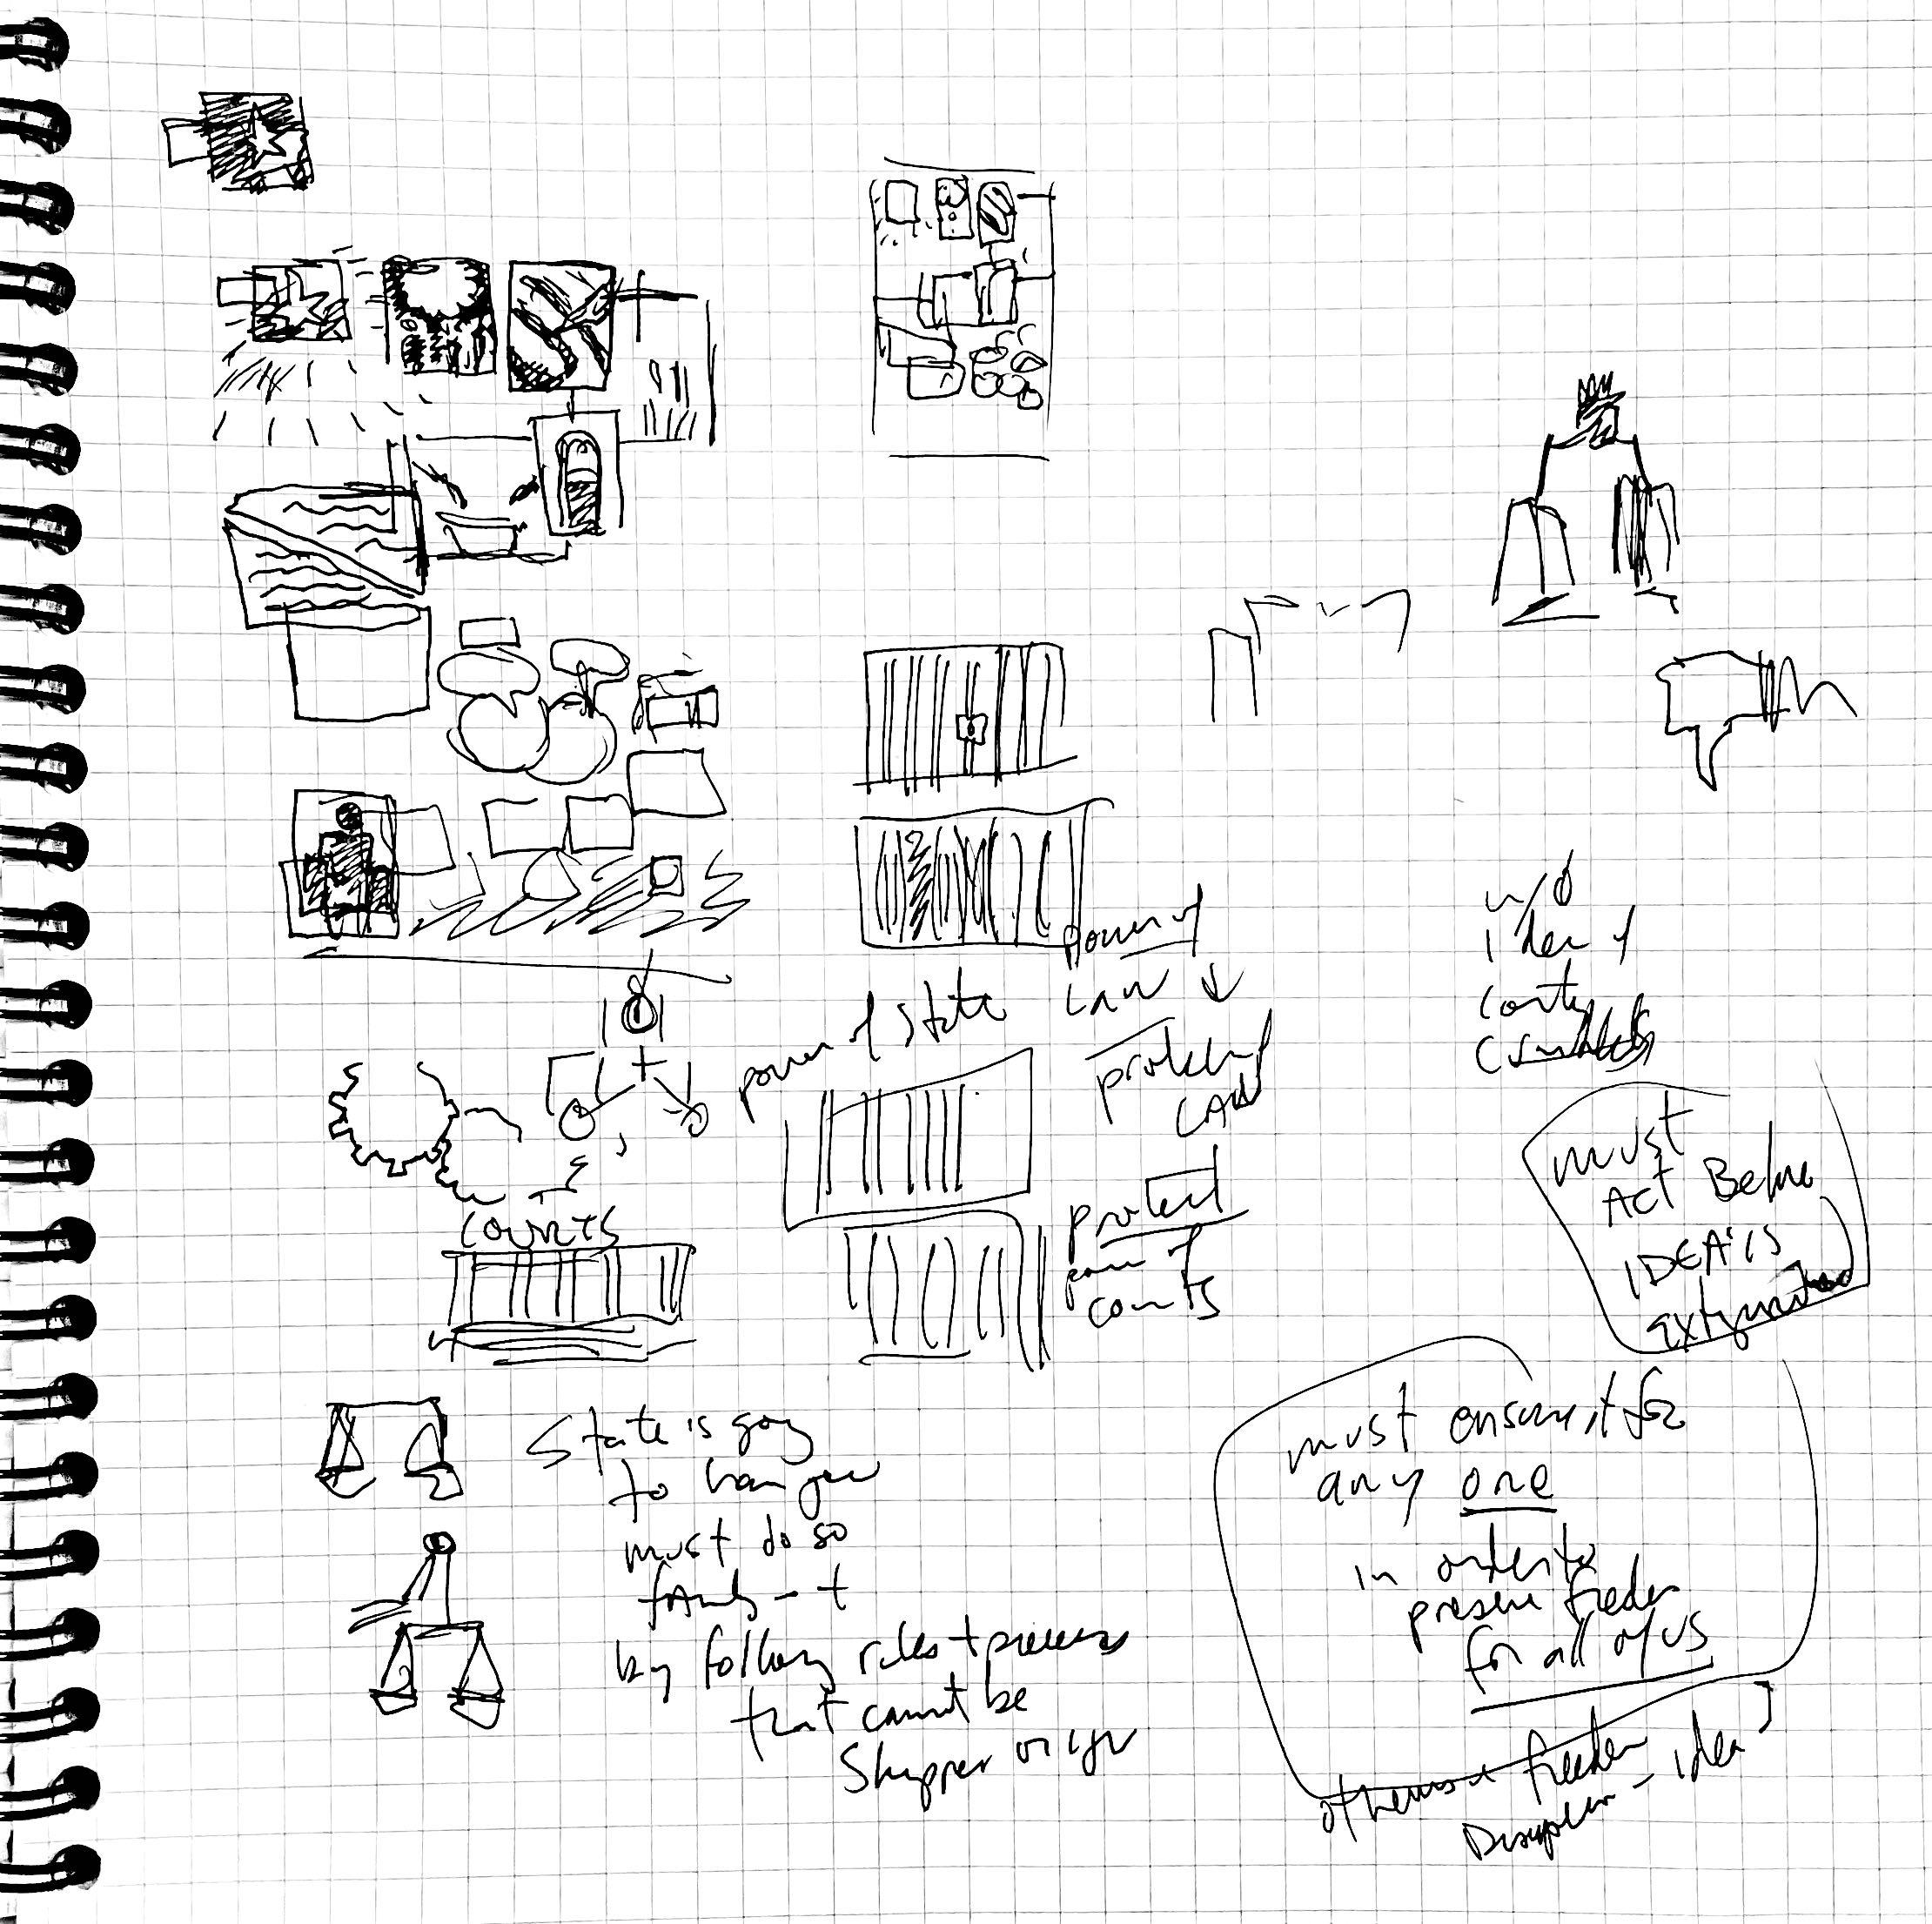 power of state
power of
LAW ↓
problem of
LAW
COURTS
protect
power of
courts
w/o
idea of
must
ACT Before
IDEA is
extinguished
State is going
to harm you
must do so
by following rules +
that cannot be
must ensure it for
any one
in order to
preserve freedom
for all of us
otherwise freedom
Disappears - idea